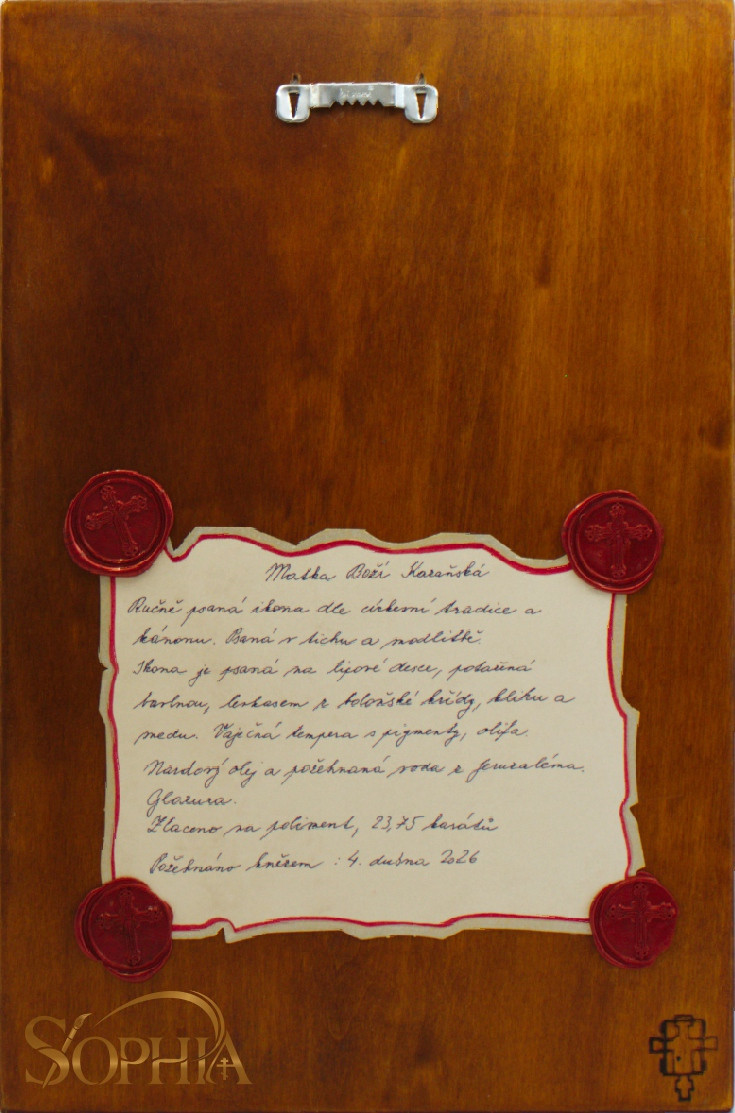 Matka Boží Kazaňská
Ručně psaná ikona dle církevní tradice a
kánonu. Psaná v tichu a modlitbě.
Ikona je psaná na lipové desce, potažená
bavlnou, levkasem z boloňské křídy, klihu a
medu. Vaječná tempera s pigmenty, olifa.
Nardový olej a požehnaná voda z Jeruzaléma.
Glazura.
Zlaceno na poliment, 23,75 karátů
Požehnáno knězem : 4. dubna 2026
SOPHIA